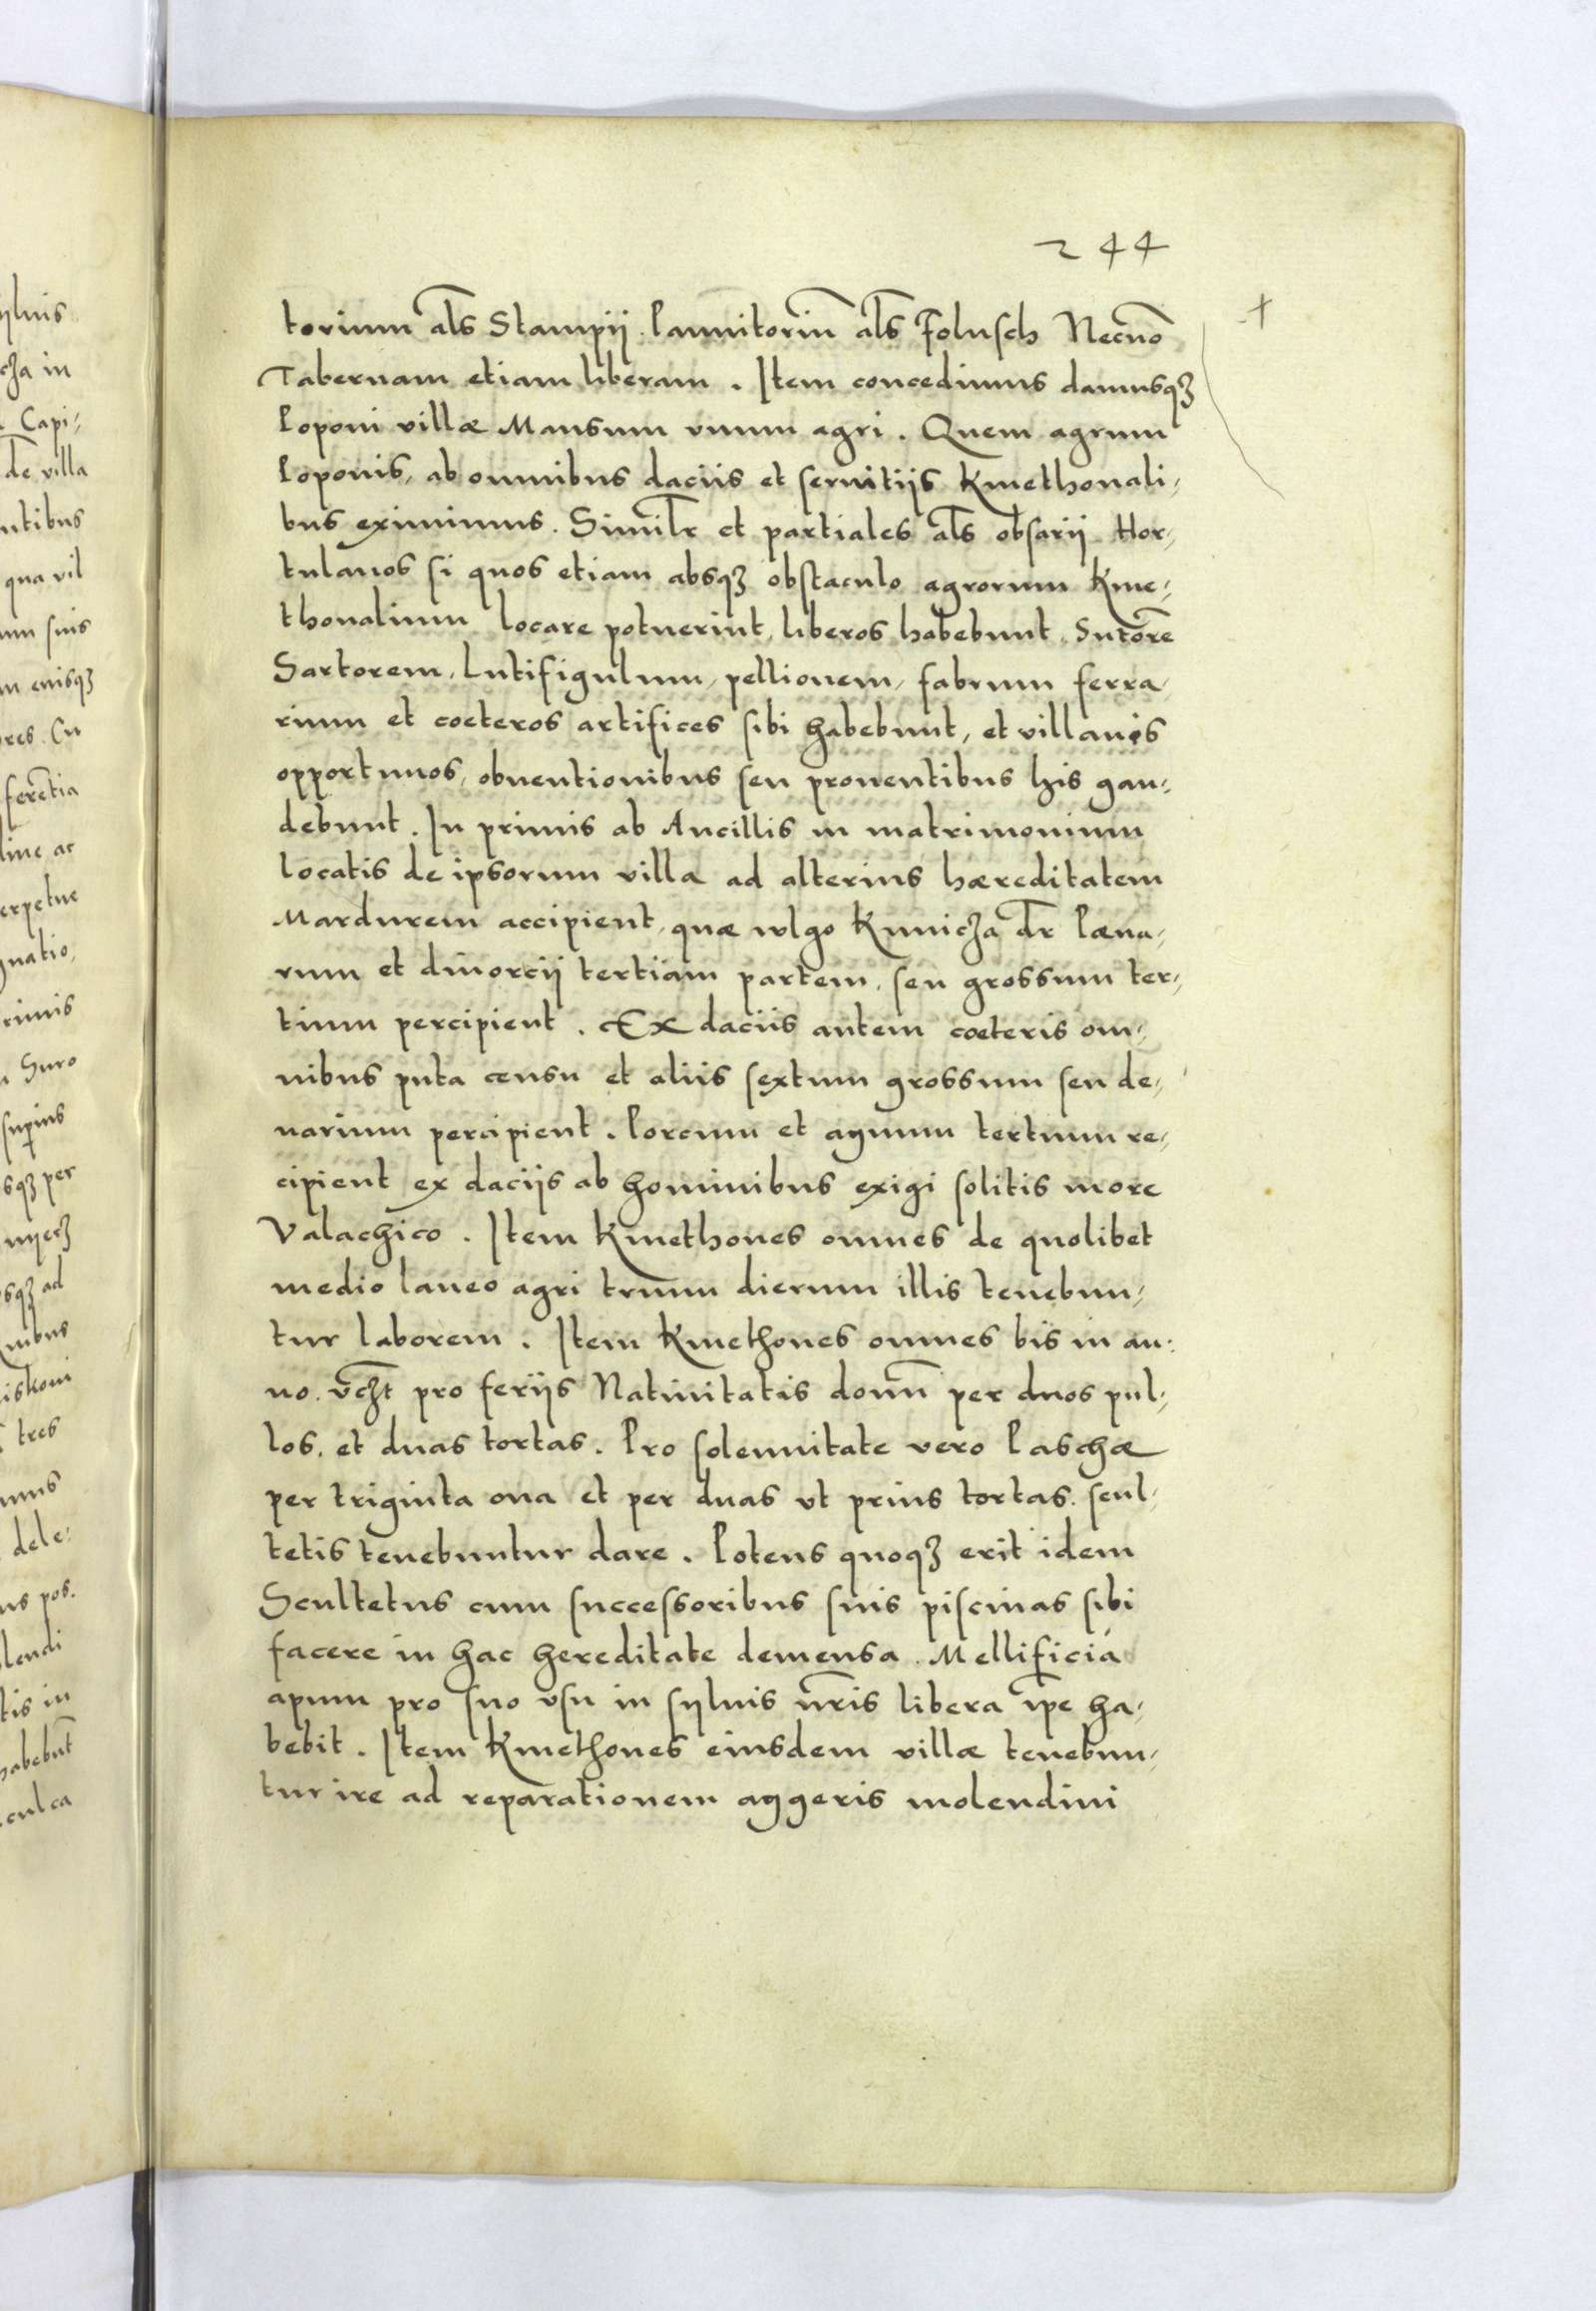 244
torium als Stampij. Pannitoriū als Folusch Necnō
Tabernam etiam liberam. Item concedimus damusqȝ
Poponi villæ Mansum vnum agri. Quem agrum
Poponis, ab omnibus daciis et seruitijs Kmethonali,
bus eximimus. Similr et partiales als obsarij Hor,
tulanos si quos etiam absqȝ obstaculo agrorum Kme,
thonalium locare potuerint, liberos habebunt. Sutorē
Sartorem, Lutifigulum, pellionem, fabrum ferra,
rium et coeteros artifices sibi habebunt, et villanis
opportunos, obuentionibus seu prouentibus his gau,
debunt. In primis ab Ancillis in matrimonium
locatis de ipsorum villa ad alterius hæreditatem
Mardurem accipient, quæ wlgo Kunicza dr Pæna,
rum et diuorcij tertiam partem, seu grossum ter,
tium percipient. Ex daciis autem coeteris om,
nibus puta censu et aliis sextum grossum seu de,
narium percipient. Porcum et agnum tertium re,
cipient ex dacijs ab hominibus exigi solitis more
Valachico. Item Kmethones omnes de quolibet
medio laneo agri trium dierum illis tenebun,
tur laborem. Item Kmethones omnes bis in an:
no. vczt pro ferijs Natiuitatis domī per duos pul,
los, et duas tortas. Pro solennitate vero Paschæ
per triginta oua et per duas vt prius tortas. scul,
tetis tenebuntur dare. Potens quoqȝ erit idem
Scultetus cum successoribus suis piscinas sibi
facere in hac hereditate demensa. Mellificia
apum pro suo vsu in syluis nr̄is libera ip̄e ha,
bebit. Item Kmethones eiusdem villæ tenebun,
tur ire ad reparationem aggeris molendini